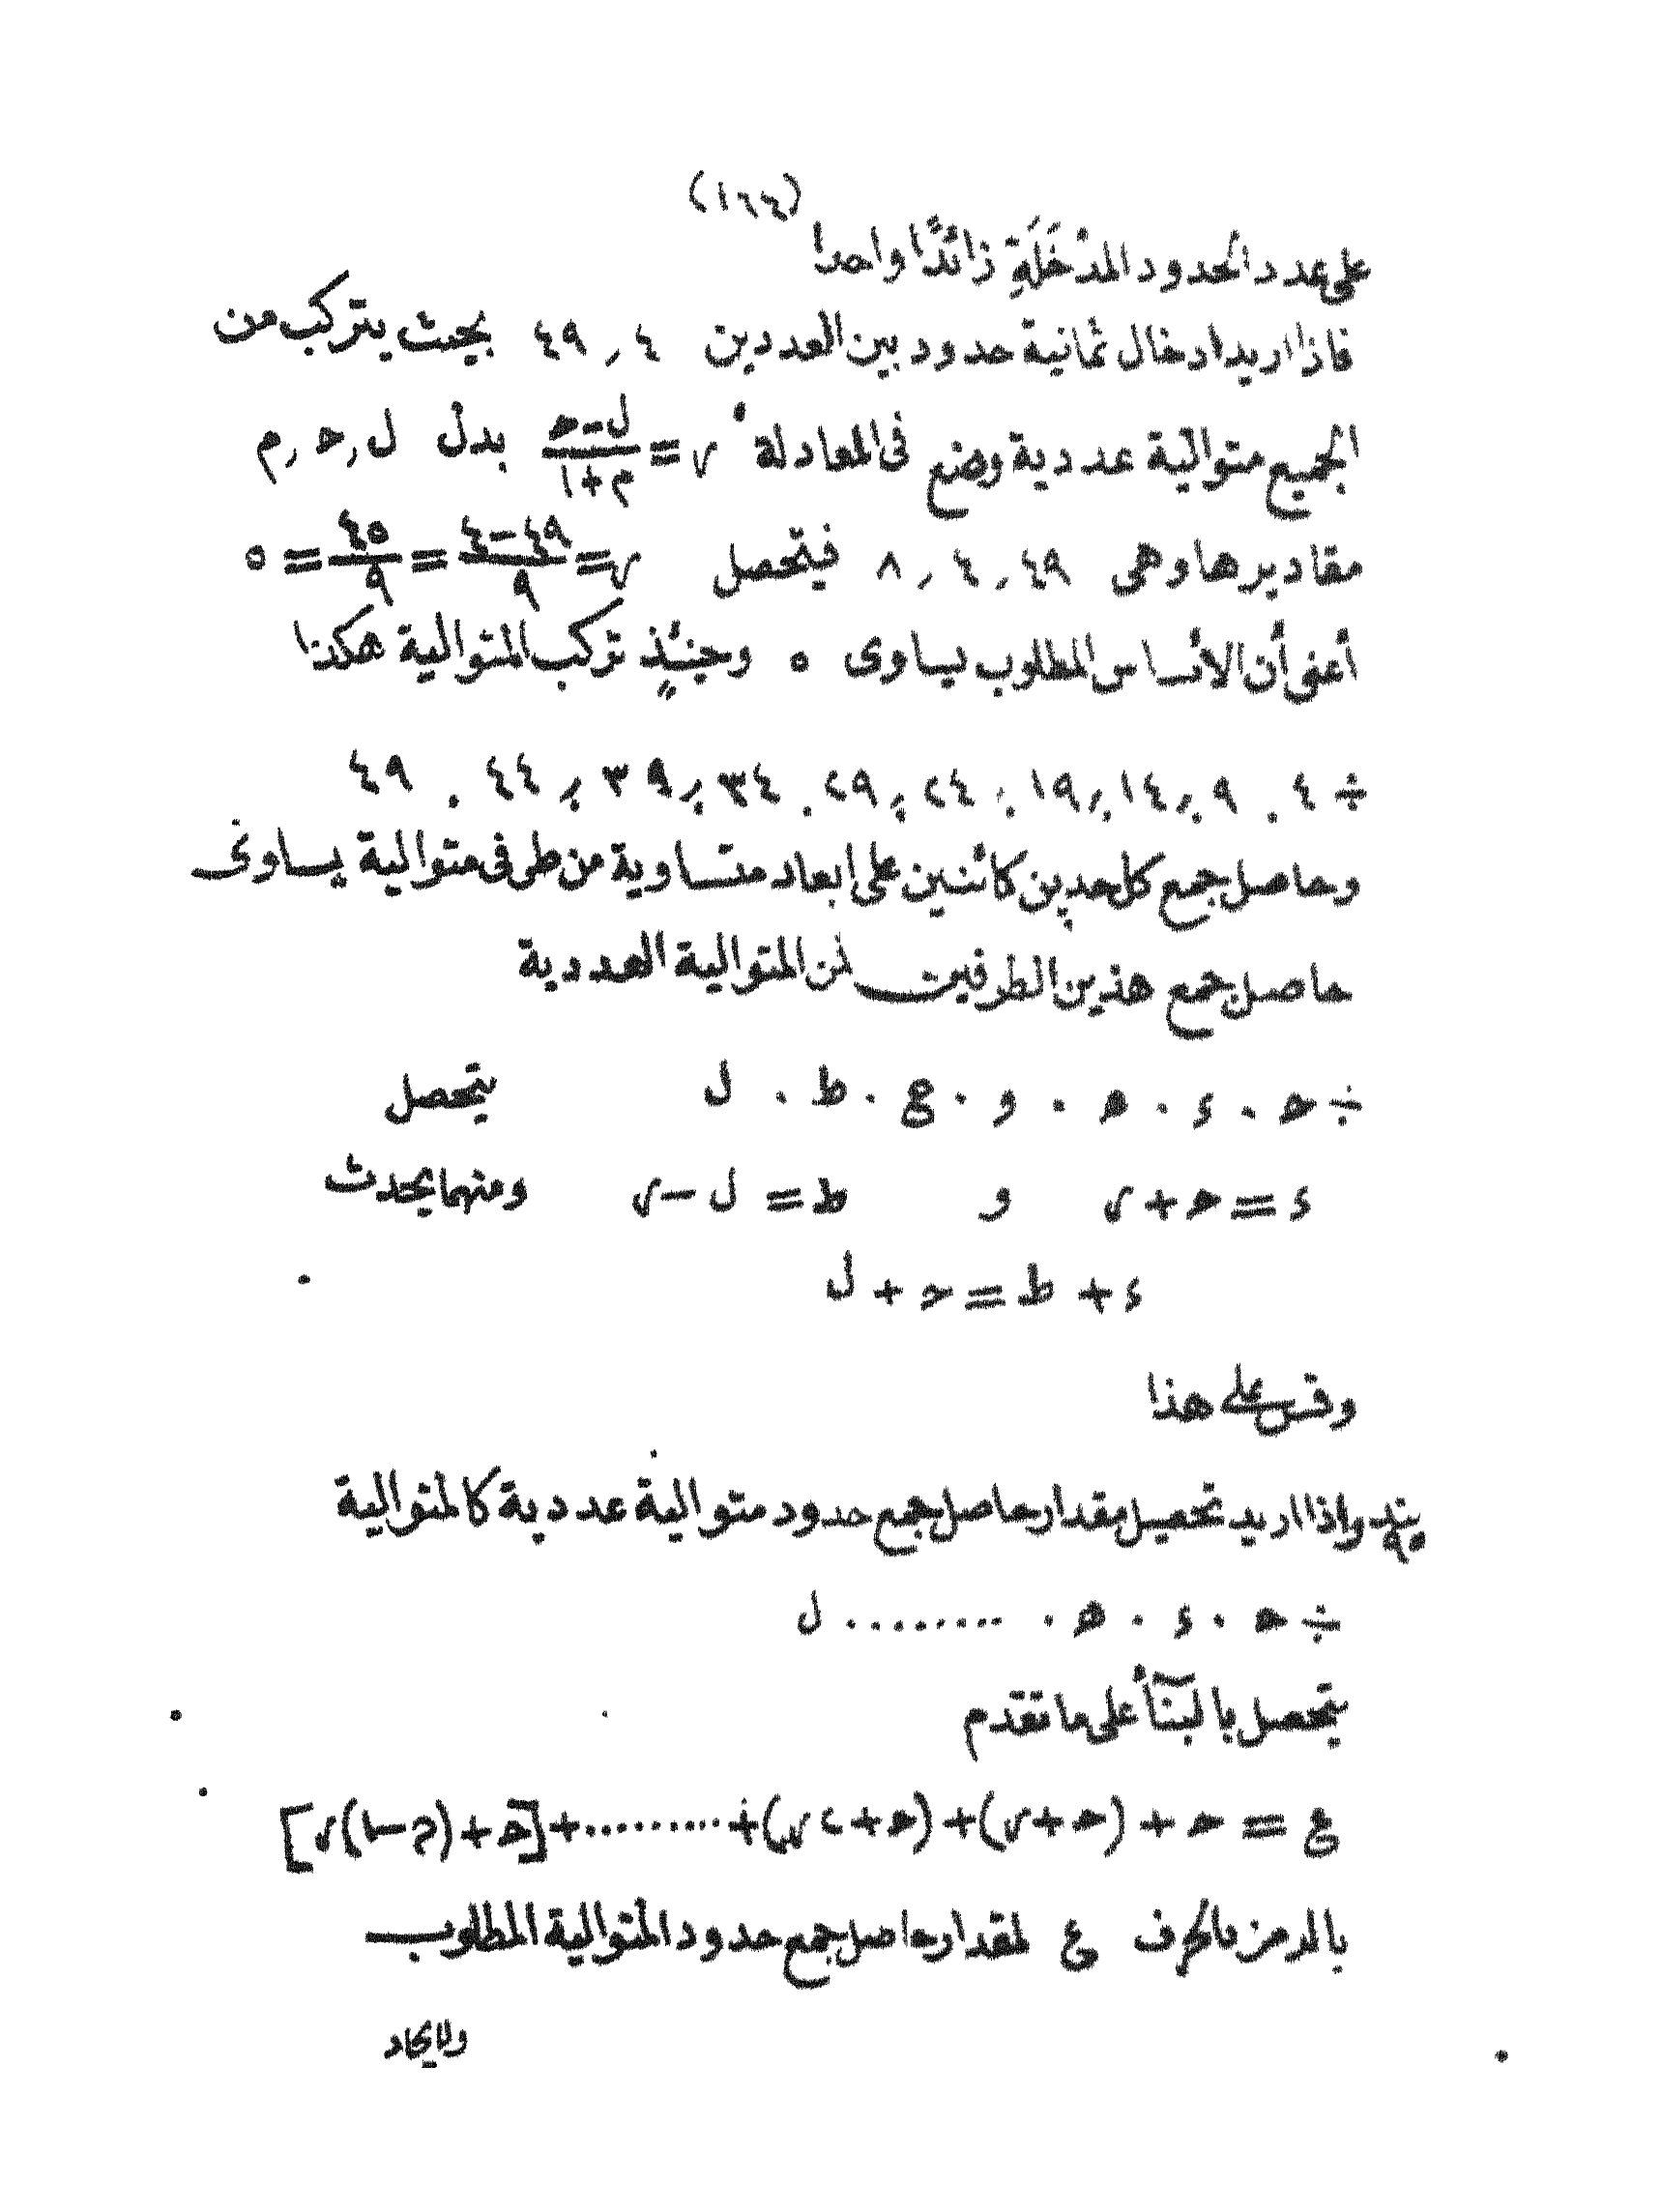 (١٦٤)
على عدد الحدود المدْخَلَةِ زائدًا واحدا
فاذا اريد ادخال ثمانية حدود بين العددين ٤ ر ٤٩ بحيث يتركب من
الجميع متوالية عددية وضع فى المعادلة ٧ = (ل-حـ)/(م+١) بدل ل ر حـ ر م
مقاديرها وهى ٤٩ ر ٤ ر ٨ فيتحصل ٧ = (٤٩-٤)/٩ = ٤٥/٩ = ٥
أعنى أن الأساس المطلوب يساوى ٥ وحينئذٍ تركب المتوالية هكذا
÷ ٤ . ٩ . ١٤ . ١٩ . ٢٤ . ٢٩ . ٣٤ . ٣٩ . ٤٤ . ٤٩
وحاصل جمع كل حدين كائنين على ابعاد متساوية من طرفى متوالية يساوى
حاصل جمع هذين الطرفين لمن المتوالية العددية
÷ حـ . ء . هـ . و . ع . ط . ل يتحصل
ء = حـ + ٧ و ط = ل - ٧ ومنهما يحدث
ء + ط = حـ + ل
وقس على هذا
بند ٩٥ واذا اريد تحصيل مقدار حاصل جمع حدود متوالية عددية كالمتوالية
÷ حـ . ء . هـ . ......... ل
يتحصل بالبنآء على ما تقدم
ع = حـ + (حـ+٧) + (حـ+٢٧) + ......... + [حـ + (م-١)٧]
بالرمز بالحرف ع لمقدار حاصل جمع حدود المتوالية المطلوب
ولايكاد